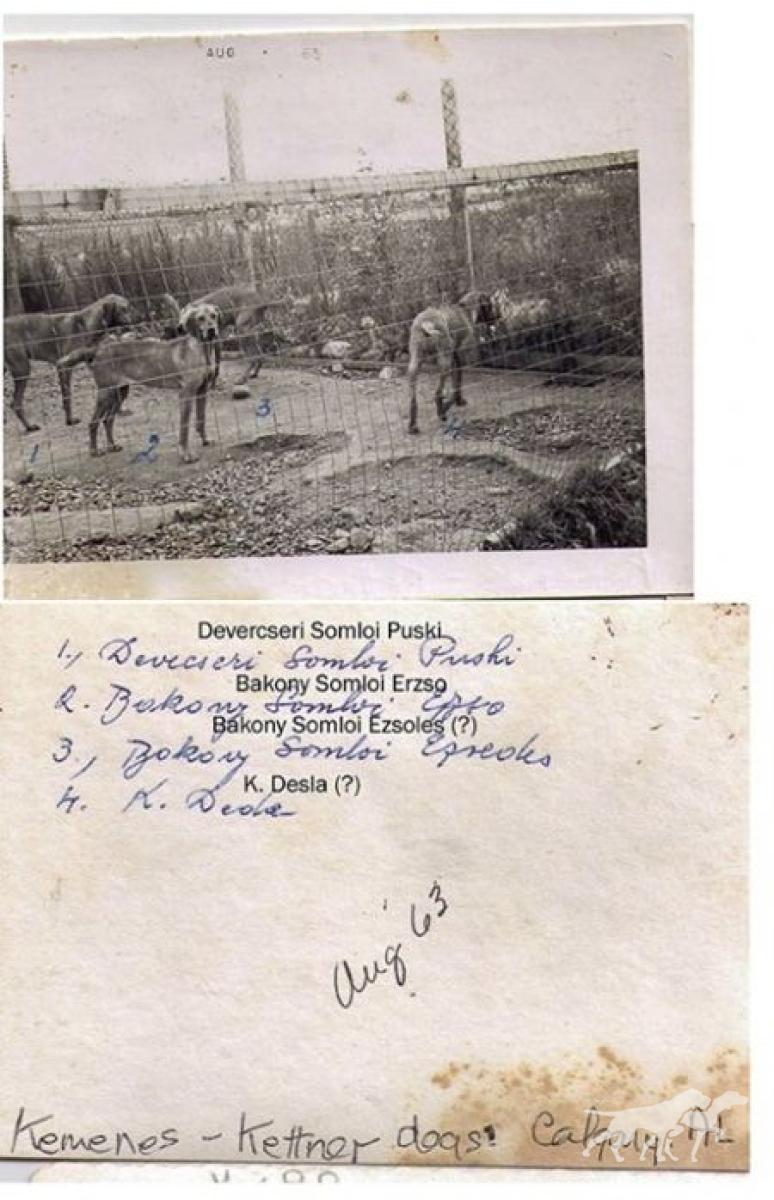 AUG • 63
1
2
3
4
Devercseri Somloi Puski
1., Devecseri Somloi Puski
Bakony Somloi Erzso
2. Bakony Somloi Erzso
Bakony Somloi Ezsoles (?)
3., Bakony Somloi
K. Desla (?)
4. K.
Aug '63
Kemenes - Kettner dogs: Calgary, AL